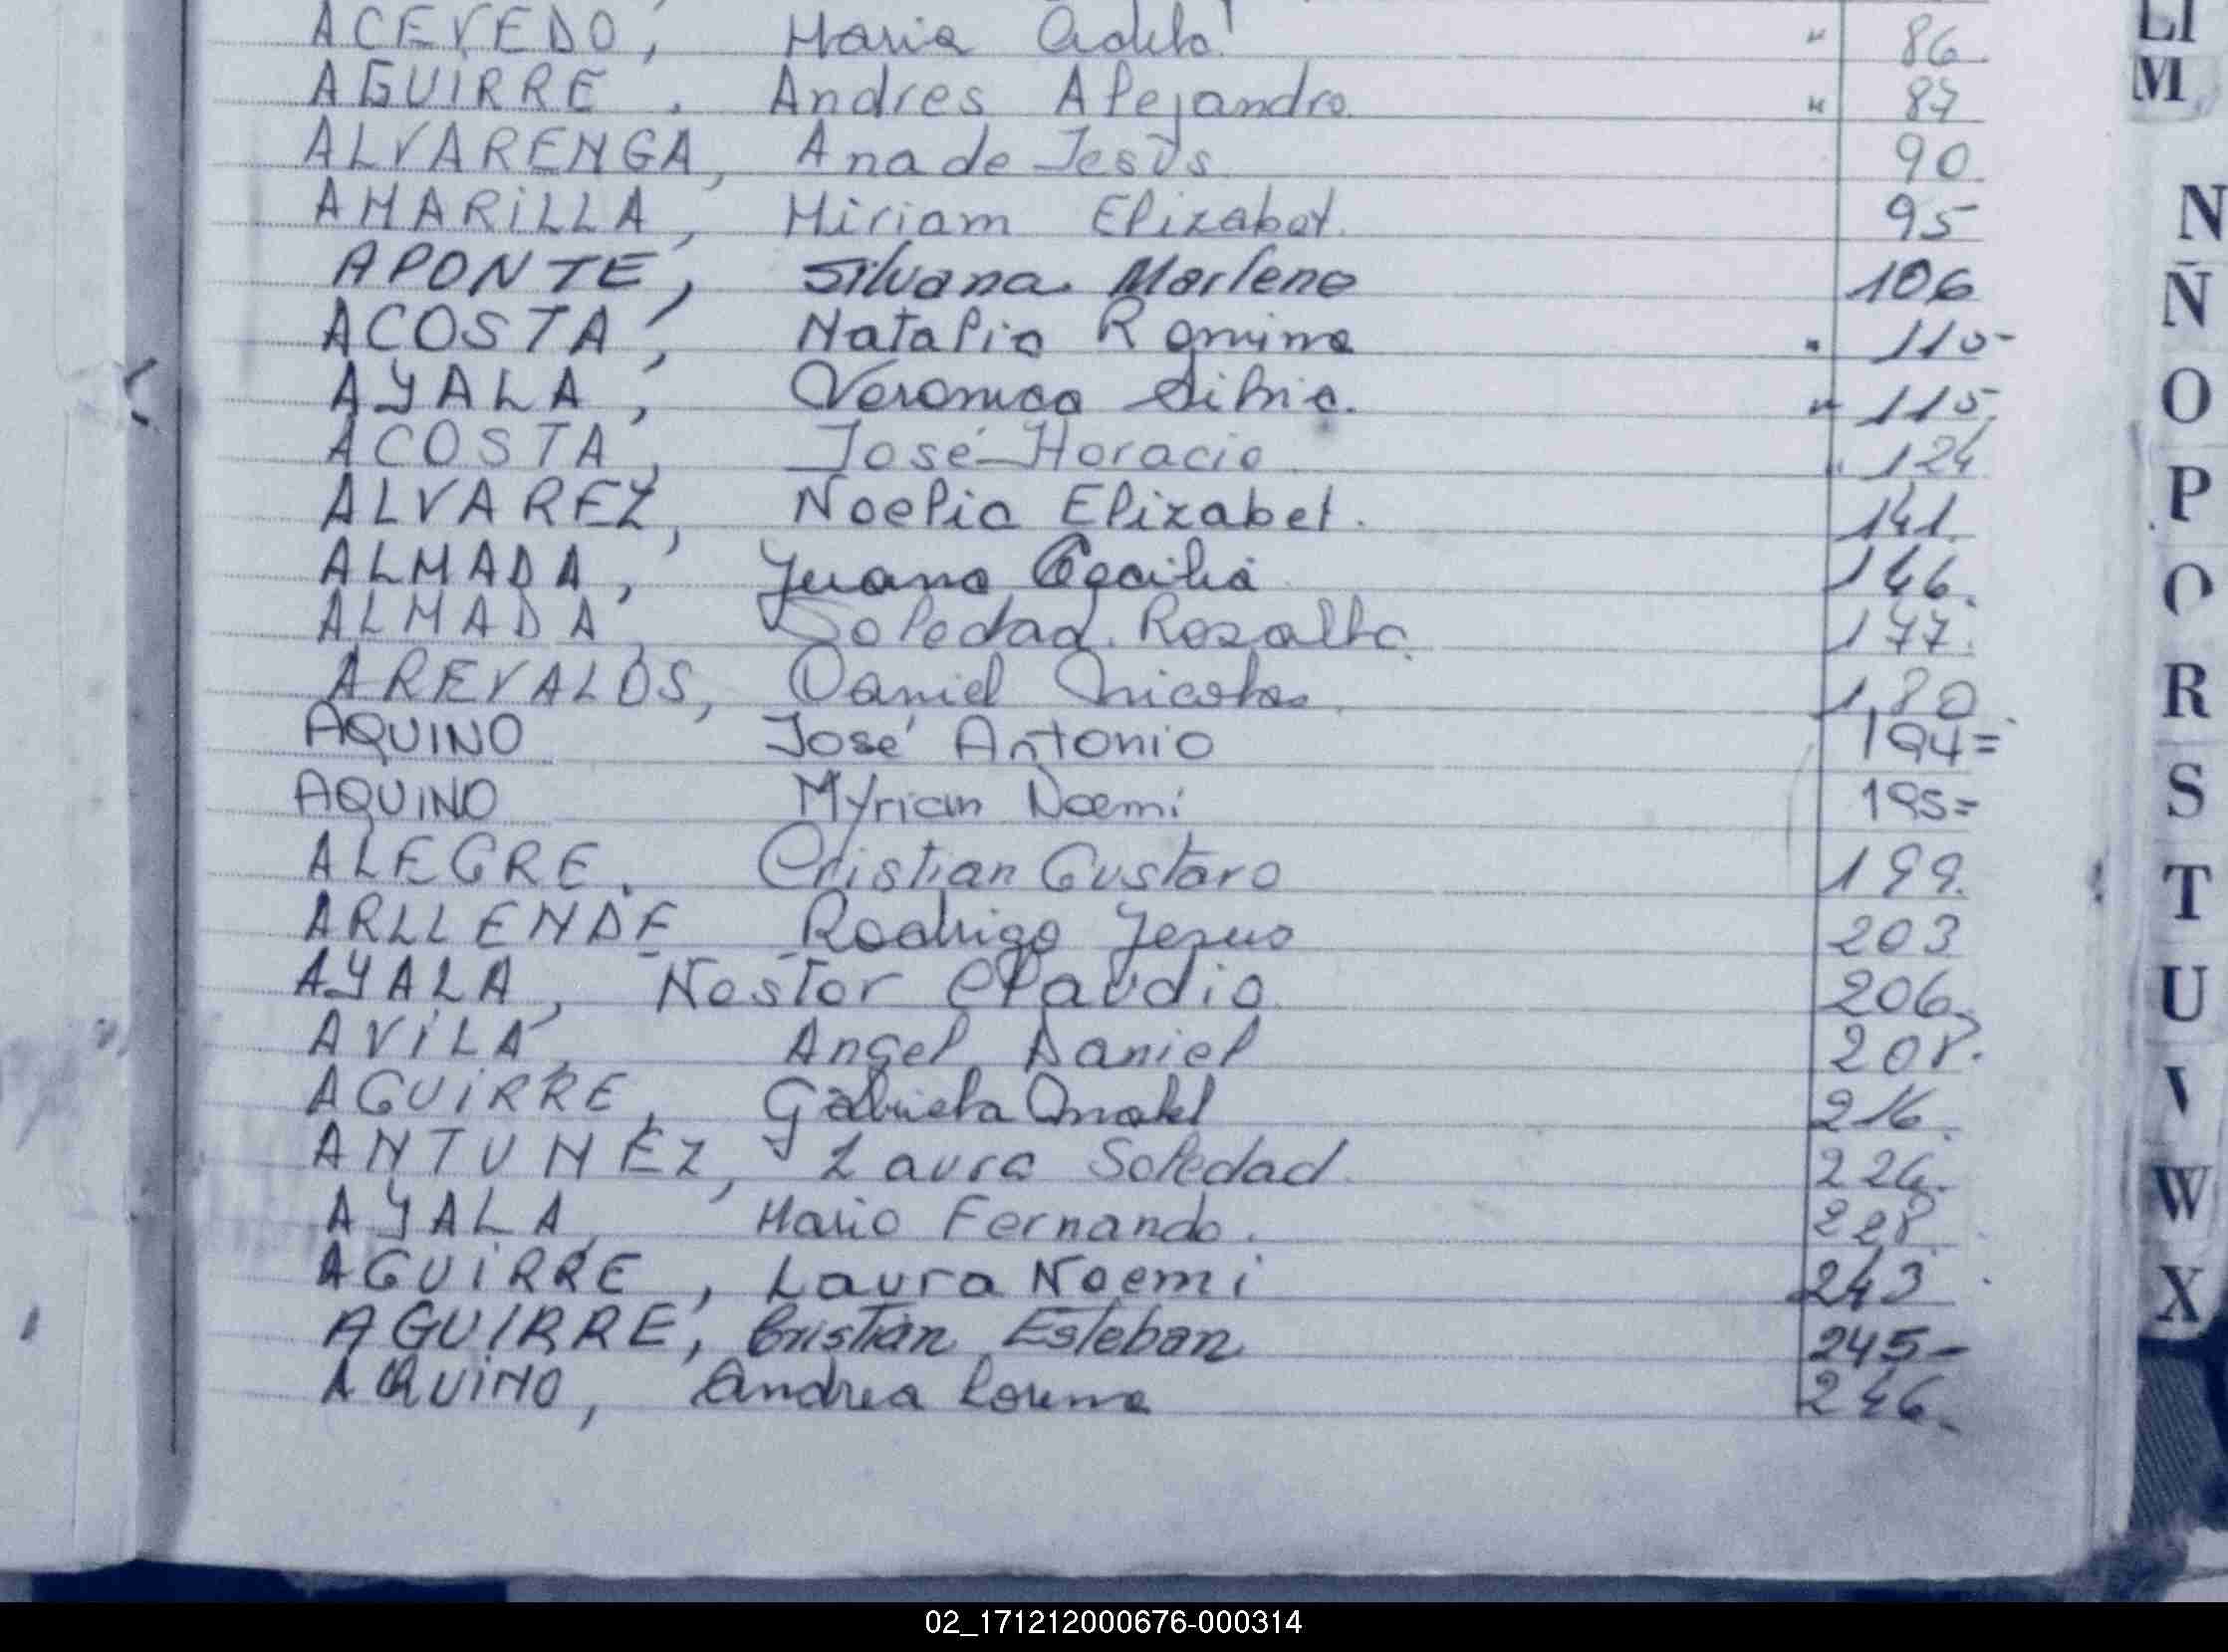 ACEVEDO, Maria Adela " 86
AGUIRRE, Andres Alejandro " 87
ALVARENGA, Ana de Jesús 90
AMARILLA, Miriam Elizabet. 95
APONTE, Silvana Marlene 106
ACOSTA, Natalia Romina " 110-
AYALA, Veronica Silvia. " 115
ACOSTA, José Horacio " 124
ALVAREZ, Noelia Elizabet. 141.
ALMADA, Juana Cecilia 146.
ALMADA, Soledad Rosalba. 177.
AREVALOS, Daniel Nicolas 180
AQUINO José Antonio 194=
AQUINO Myrian Noemi 195=
ALEGRE, Cristian Gustavo 199.
ARLLENDE Rodrigo Jesus 203
AYALA, Nestor Claudio 206.
AVILA, Angel Daniel 208.
AGUIRRE, Gabriela 216.
ANTUNEZ, Laura Soledad 224.
AYALA, Mario Fernando. 228
AGUIRRE, Laura Noemi 243
AGUIRRE, Cristian Esteban 245-
AQUINO, Andrea Lorena 246.
LI
M
N
Ñ
O
P
Q
R
S
T
U
V
W
X
02_171212000676-000314